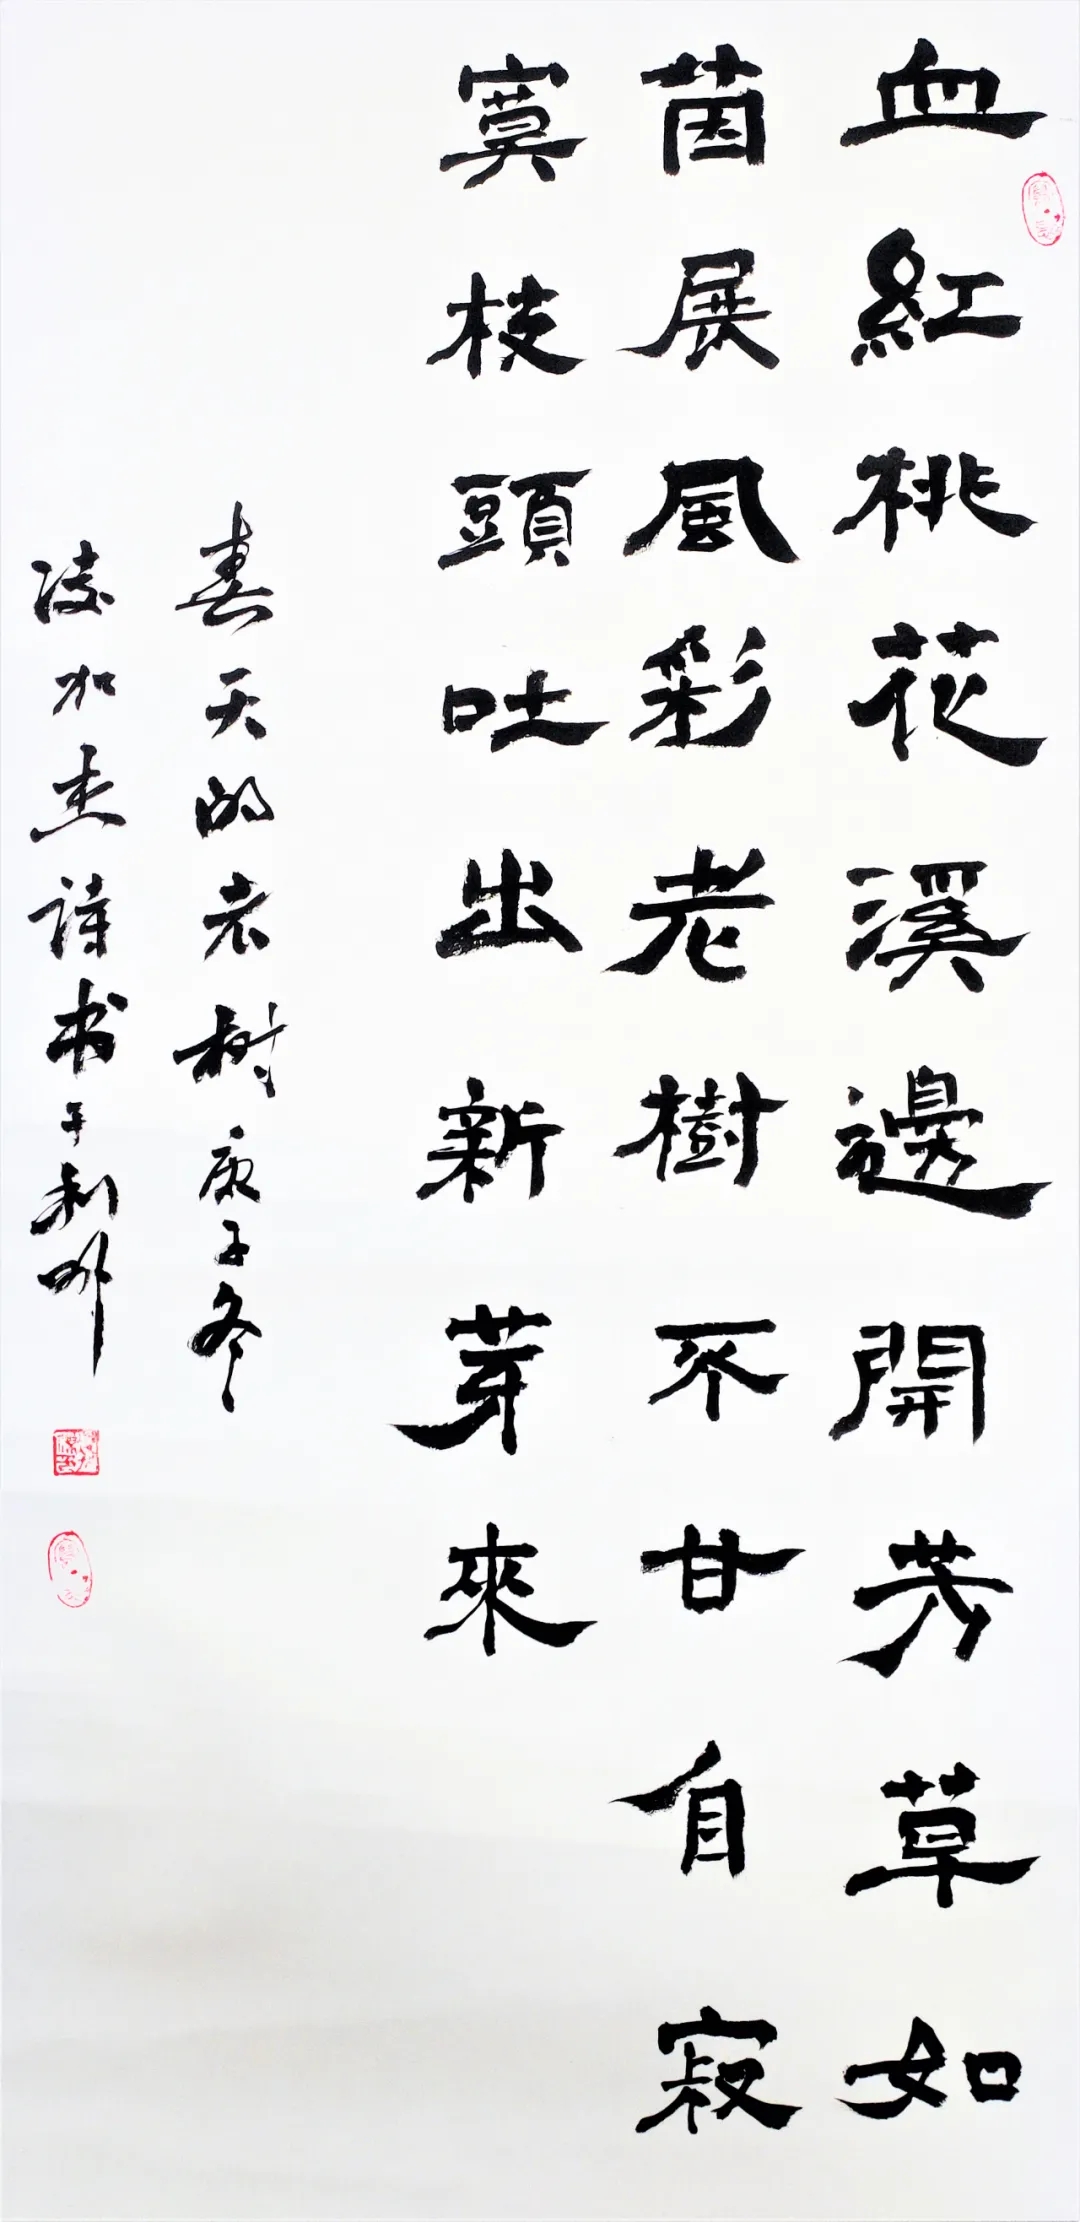 血紅桃花溪邊開芳草如
茵展風彩老樹不甘自寂
寞枝頭吐出新芽來
春天的老樹庚子冬
凌加杰詩书于利州